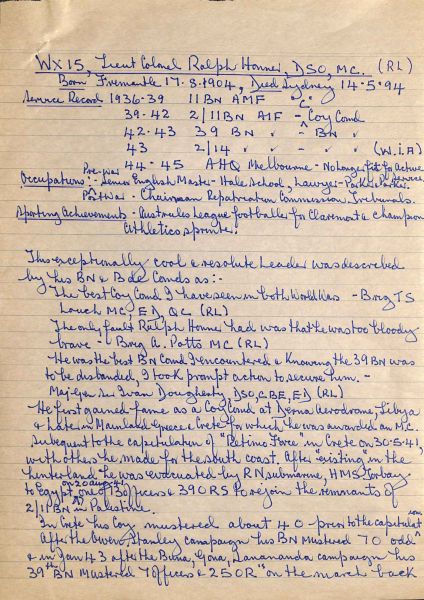 WX15, Lieut Colonel Ralph Honner, DSO, MC. (RL)
Born Fremantle 17.8.1904, Died Sydney 14-5-94
Service Record 1936-39 11 BN AMF "C"
39-42 2/11 BN AIF - Coy Comd
42-43 39 BN " - BN "
43 2/14 " " " (W.i.A)
44-45 AHQ Melbourne - No longer fit for Active Service
Occupations :- Pre-war Senior English Master - Hale School, Lawyer - Parker & Parker.
Post War - Chairman Repatriation Commission Tribunals.
Sporting Achievements - Aust rules league footballer for Claremont & champion
athletics sprinter.
This exceptionally cool & resolute leader was described
by his BN & Bde Comds as:-
The best Coy Comd I have seen in both World Wars - Brig TS
Louch MC, ED, QC (RL)
The only fault Ralph Honner had was that he was too bloody
brave - Brig A. Potts MC (RL)
He was the best BN Comd I encountered & knowing the 39 BN was
to be disbanded, I took prompt action to secure him. -
Maj-Gen Sir Ivan Dougherty, DSO, CBE, ED (RL)
He first gained fame as a Coy Comd at Derna Aerodrome, Libya
& later in Mainland Greece & Crete for which he was awarded an M.C.
Subsequent to the capitulation of "Retimo Force" in Crete on 30-5-41,
with others he made for the south coast. After "existing" in the
hinterland he was evacuated by RN submarine, HMS Torbay
to Egypt, on 20 Aug 41 one of 13 officers & 39 ORS to rejoin the remnants of
2/11 BN in Palestine.
In Crete his Coy mustered about 40 prior to the capitulation
After the Owen Stanley campaign his BN Mustered 70 odd
& in Jan 43 after the Buna, Gona, Sanananda campaign his
39th BN Mustered 7 Officers & 25 OR "on the march back